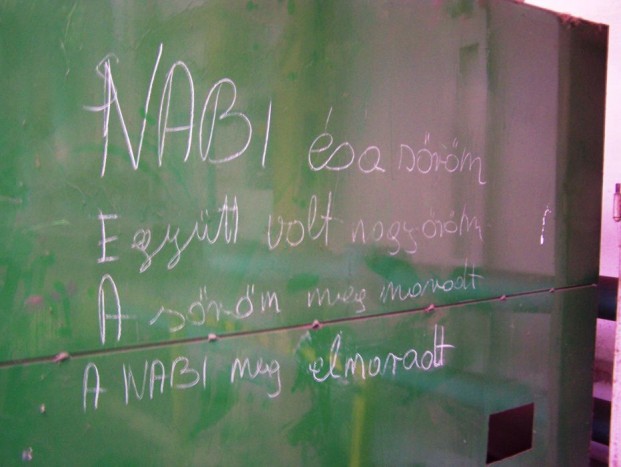 NABI és a söröm
Együtt volt nagyöröm !
A söröm meg maradt
A NABI meg elmaradt